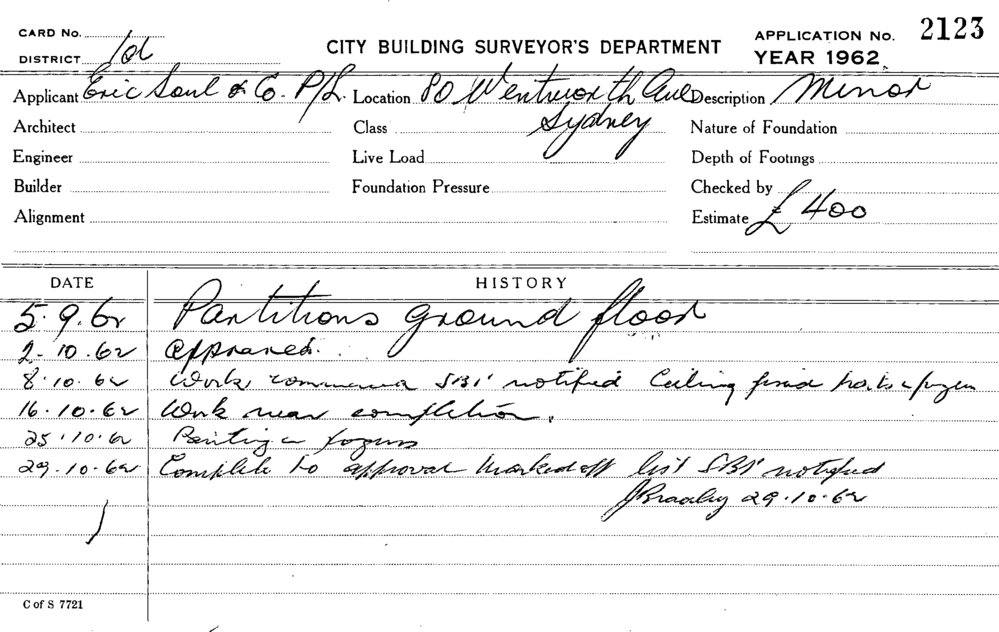 CARD No.
DISTRICT 1d
CITY BUILDING SURVEYOR'S DEPARTMENT
APPLICATION No. 2123
YEAR 1962.
Applicant Eric Saul & Co. P/L. Location 80 Wentworth Ave Description Minor
Sydney
Architect Class Nature of Foundation
Engineer Live Load Depth of Footings
Builder Foundation Pressure Checked by
Alignment Estimate £400
DATE HISTORY
5.9.62 Partitions ground floor
2.10.62 Approved.
8.10.62 Work SBI notified Ceiling
16.10.62 Work near completion.
25.10.62
29.10.62 Complete to approval Marked off list SBI notified
JBradley 29.10.62
C of S 7721